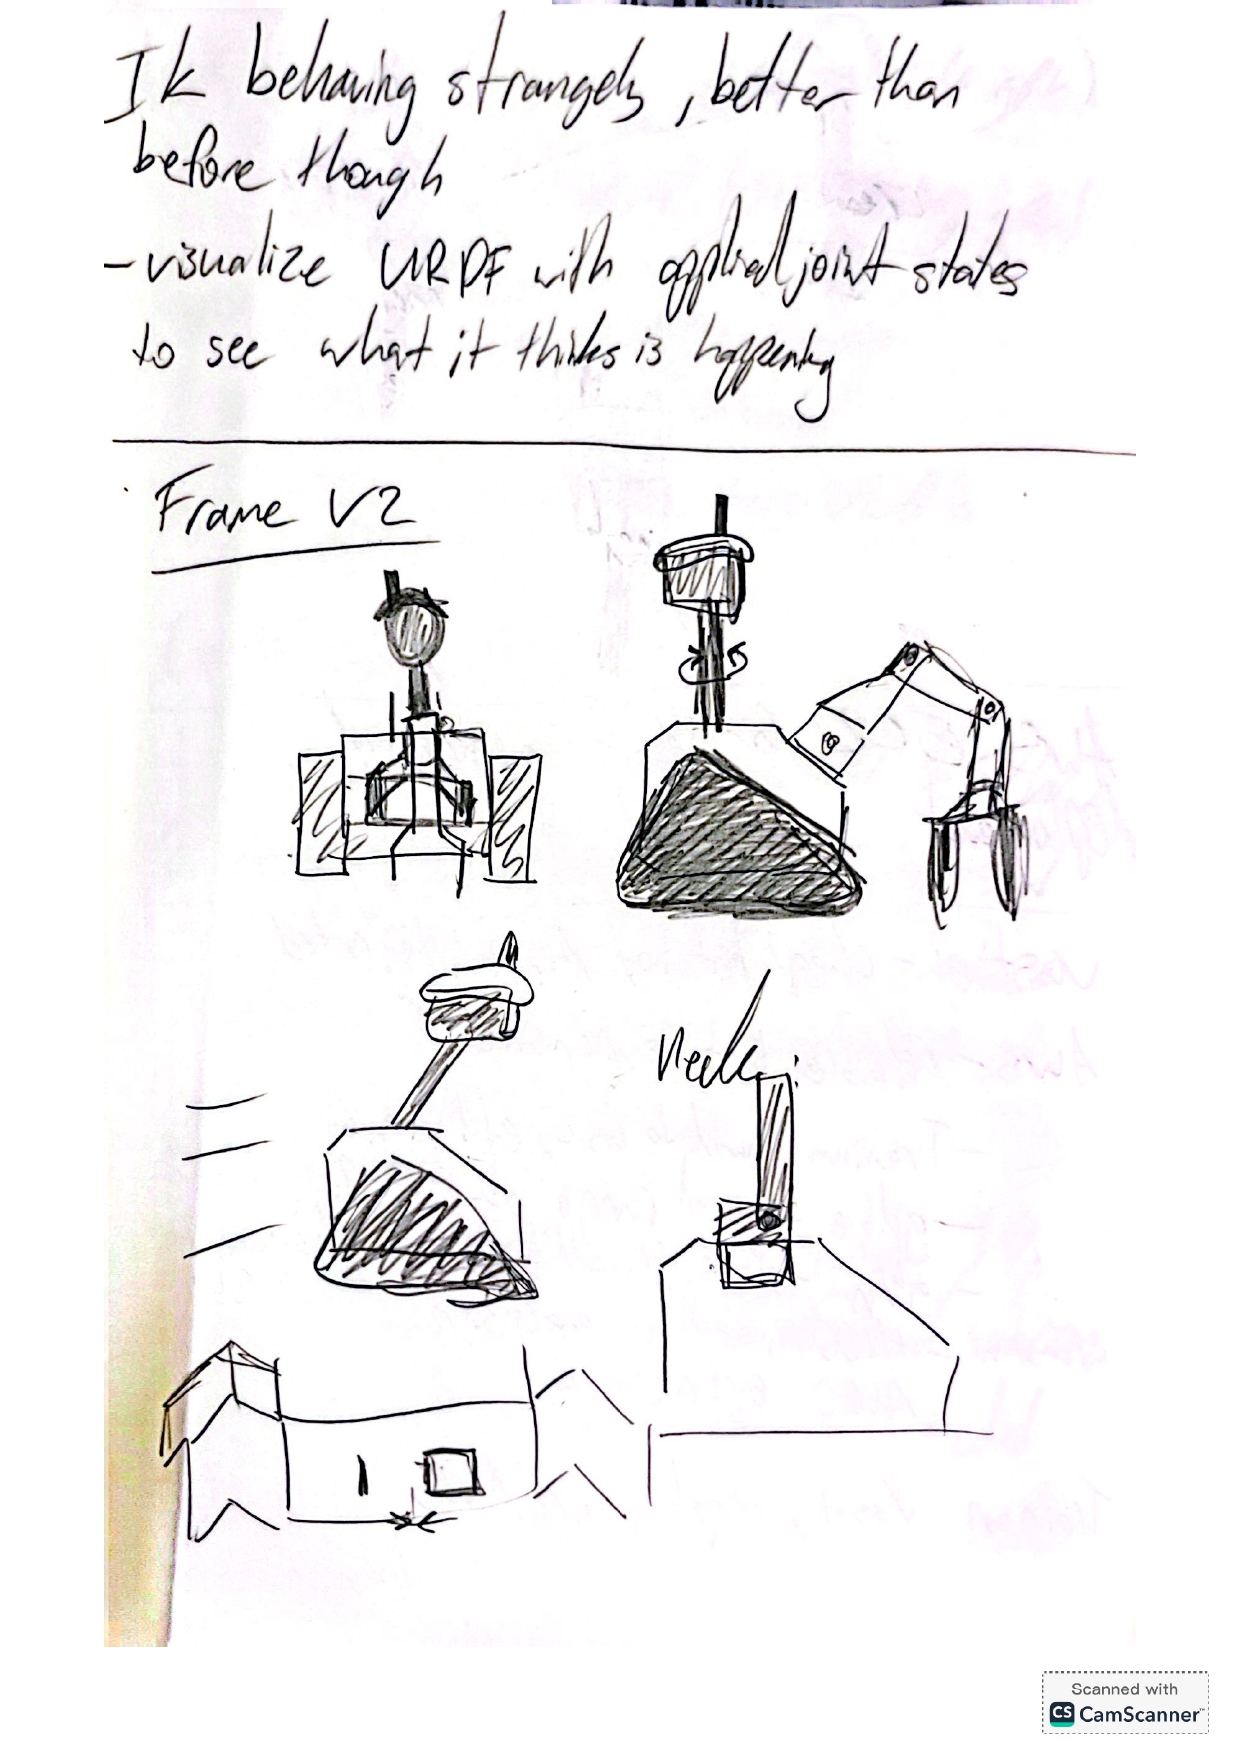 Ik behaving strangely, better than
before though
- visualize URDF with applied joint states
to see what it thinks is happening
Frame V2
Neck:
Scanned with
CS CamScanner